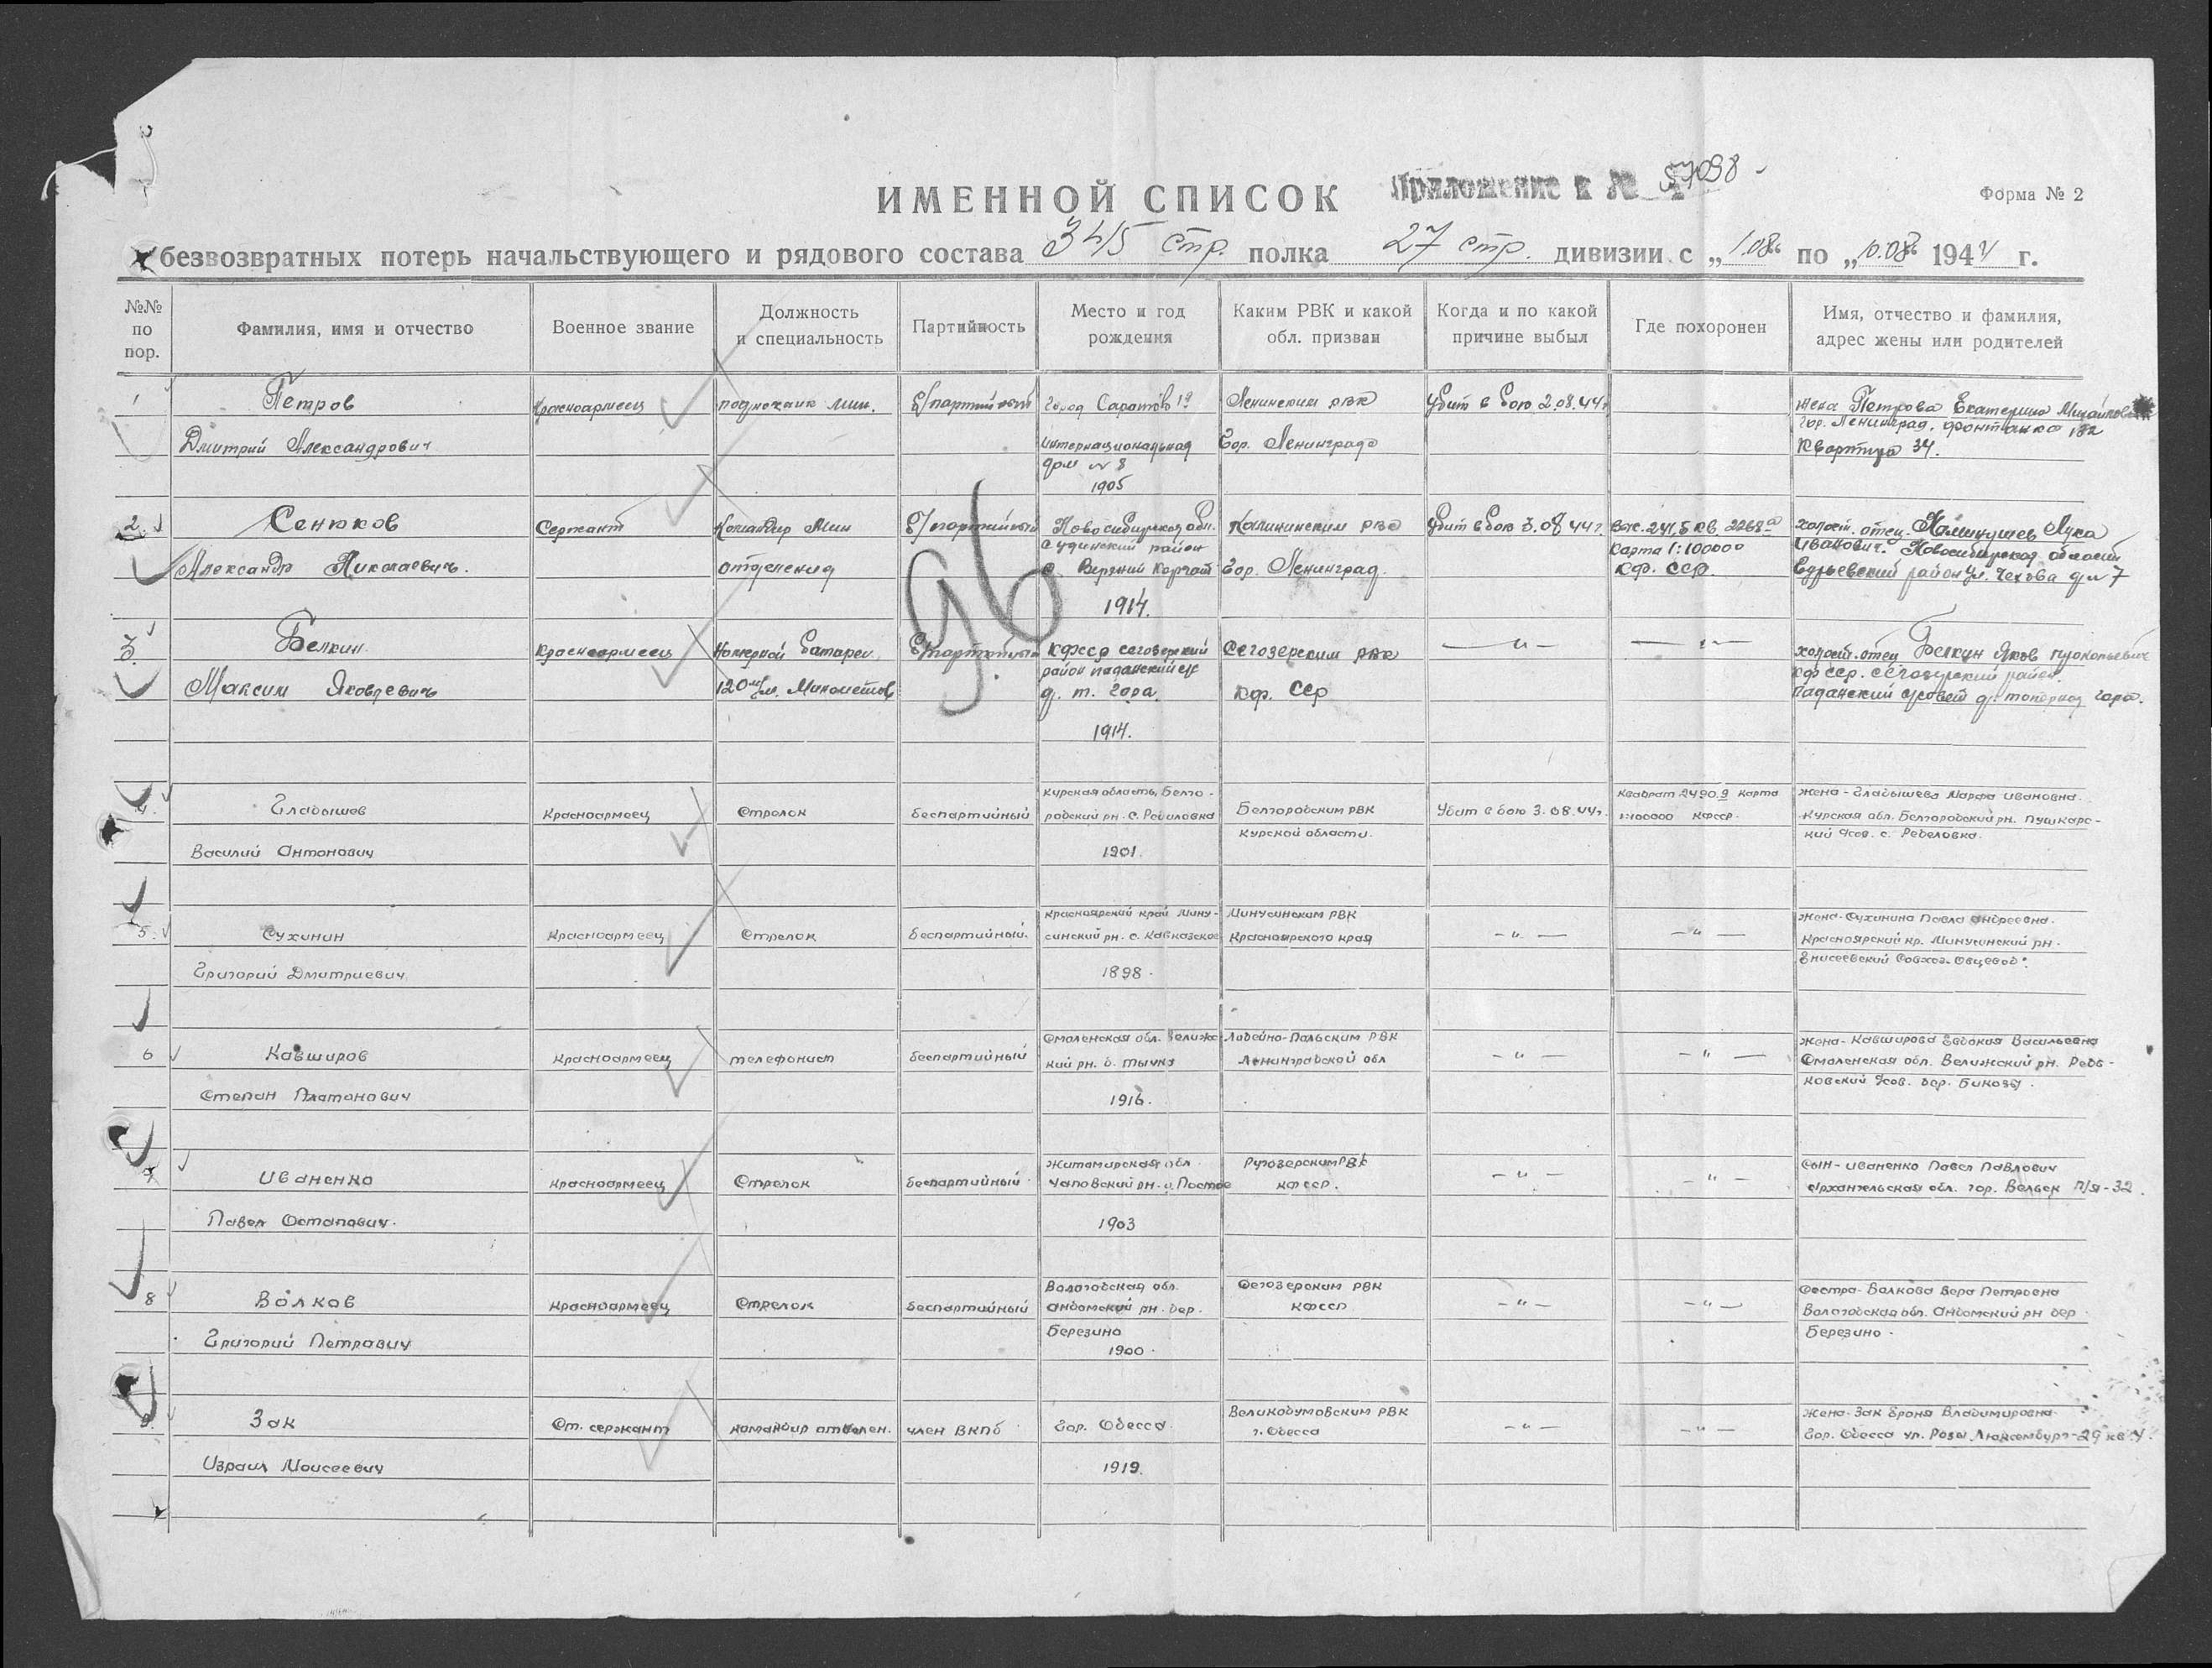 Приложение к № 57098
ИМЕННОЙ СПИСОК
Форма № 2
безвозвратных потерь начальствующего и рядового состава 345 стр. полка 27 стр. дивизии с „1.08“ по „10.08“ 1944 г.
№№ по пор.
Фамилия, имя и отчество
Военное звание
Должность и специальность
Партийность
Место и год рождения
Каким РВК и какой обл. призван
Когда и по какой причине выбыл
Где похоронен
Имя, отчество и фамилия, адрес жены или родителей
1
Петров
Дмитрий Александрович
Красноармеец
мин.
б/партийный
Город Саратов
Интернациональная
дом № 8
1905
Ленинским РВК
Гор. Ленинграда
Убит в бою 2.08.44г
жена Петрова Екатерина Михайловна
гор. Ленинград, фонтанка 182
Квартира 34.
2.
Сенюков
Александр Николаевич.
Сержант
Командир Мин
отделения
б/партийный
Новосибирская обл.
район
с. Верхний
1914.
Калининским РВК
Гор. Ленинград.
Убит в бою 3.08 44г.
Выс. 241,5 кв 2268
Карта 1:100000
кф. сср.
холост. отец. Лука
Иванович. Новосибирская область
район ул. Чехова д 7
96
3.
Белкин
Максим Яковлевич
Красноармеец
Номерной батареи
120 м/м. Минометов
б/партийный
КФССР сегозерский
район паданский с/с
д. т. гора.
1914.
Сегозерским РВК
Кф. ССР
— „ —
— „ —
холост. отец Белкин Яков прокопьевич
кф сср. сегозерский район.
Паданский с/совет д. топорная гора.
4.
Гладышев
Василий Антонович
Красноармеец
Стрелок
беспартийный
Курская область, Белго-
родский рн. с.
1901.
Белгородским РВК
Курской области.
Убит в бою 3.08.44г.
Квадрат 2490.9 карта
1:100000 КФССР.
жена - Гладышева Марфа Ивановна.
Курская обл. Белгородский рн. Пушкарс-
кий с.
5.
Сухинин
Григорий Дмитриевич.
Красноармеец
Стрелок
беспартийный.
Красноярский край Мину-
синский рн. с. Кавказское
1898.
Минусинским РВК
Красноярского края
— „ —
— „ —
жена - Сухинина Павла Андреевна.
Красноярский кр. Минусинский рн.
Енисеевский Совхоз - Овцевод.
6
Кавширов
Степан Платонович
Красноармеец
телефонист
беспартийный
Смоленская обл. Велижс
кий рн. д.
1916.
Лодейно-Польским РВК
Ленинградской обл
— „ —
— „ —
жена - Кавширова Евдокия Васильевна
Смоленская обл. Велижский рн.
дер.
7
Иваненко
Павел Остапович.
Красноармеец
Стрелок
беспартийный.
Житомирская обл
Чаповский рн.
1903
Ругозерским РВК
КФССР.
— „ —
— „ —
Сын - Иваненко Павел Павлович
Архангельская обл. гор. Вельск п/я - 32.
8
Волков
Григорий Петрович
Красноармеец
Стрелок
беспартийный
Вологодская обл.
Андомский рн. дер.
Березино
1900.
Сегозерским РВК
КФССР
— „ —
— „ —
Сестра - Волкова Вера Петровна
Вологодская обл. Андомский рн дер
Березино.
9.
Зак
Израил Моисеевич
Ст. сержант
командир отделен.
член ВКПб
Гор. Одесса.
1919.
РВК
г. Одесса
— „ —
— „ —
Жена - Зак Броня Владимировна
Гор. Одесса ул. Розы Люксембург - 29 кв. 4.